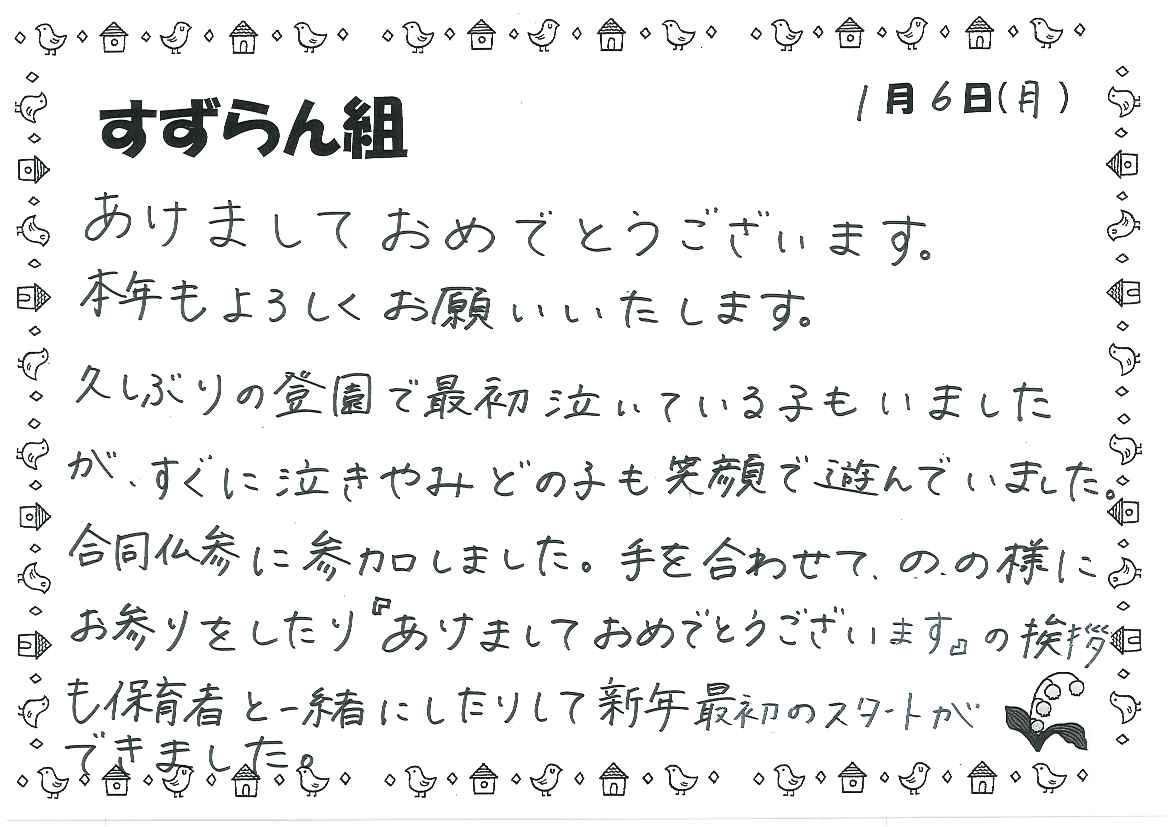 すずらん組
1月6日(月)
あけましておめでとうございます。
本年もよろしくお願いいたします。
久しぶりの登園で最初泣いている子もいました
が、すぐに泣きやみどの子も笑顔で遊んでいました。
合同仏参に参加しました。手を合わせて、の、の様に
お参りをしたり『あけましておめでとうございます』の挨拶
も保育者と一緒にしたりして新年最初のスタートが
できました。